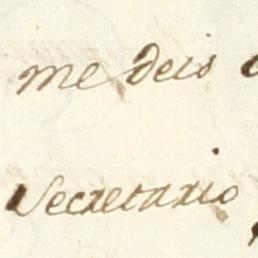 me deis
Secretario